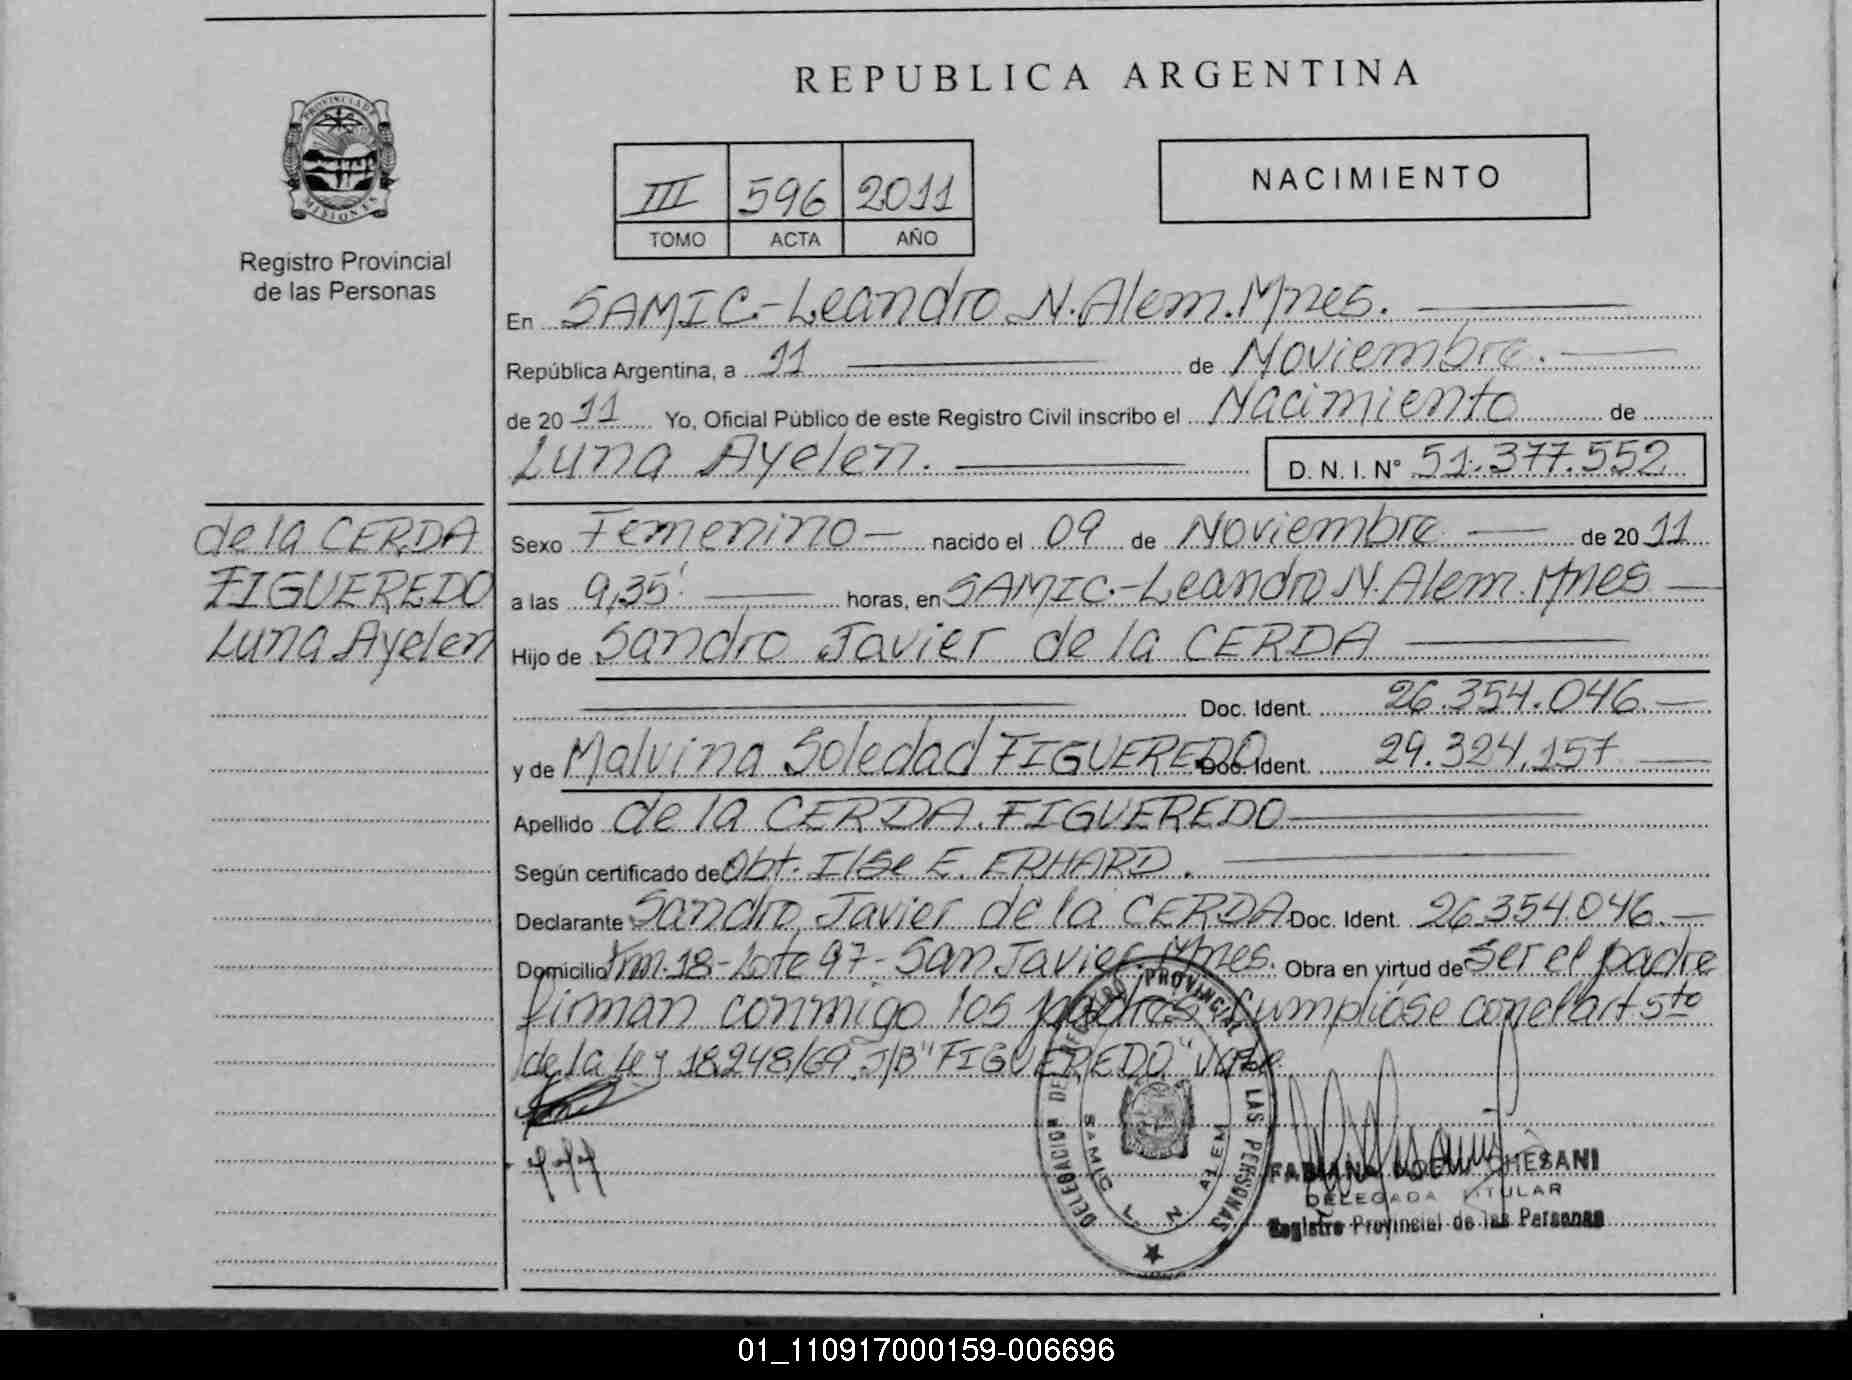 REPUBLICA ARGENTINA
PROVINCIA DE MISIONES
Registro Provincial
de las Personas
III 596 2011
TOMO ACTA AÑO
NACIMIENTO
En SAMIC.-Leandro N. Alem. Mnes.
República Argentina, a 11 de Noviembre.
de 20 11 Yo, Oficial Público de este Registro Civil inscribo el Nacimiento de
Luna Ayelen. D. N. I. N° 51.377.552
de la CERDA
FIGUEREDO
Luna Ayelen
Sexo Femenino nacido el 09 de Noviembre de 20 11
a las 9,35' horas, en SAMIC.-Leandro N. Alem. Mnes
Hijo de Sandro Javier de la CERDA
Doc. Ident. 26.354.046.
y de Malvina Soledad FIGUEREDO Doc. Ident. 29.324.157
Apellido de la CERDA. FIGUEREDO
Según certificado de Obt. Ilse E. ERHARD.
Declarante Sandro Javier de la CERDA Doc. Ident. 26.354.046.
Domicilio Km. 18-Lote 97-San Javier. Mnes. Obra en virtud de ser el padre
firman conmigo los padres. Cumplióse con el art 5to
de la Ley 18.248/69. S/B "FIGUEREDO" Vale
DELEGACION DE REGISTRO PROVINCIAL DE LAS PERSONAS
SAMIC L. N. ALEM
FABIANA CHESANI
DELEGADA TITULAR
Registro Provincial de las Personas
01_110917000159-006696